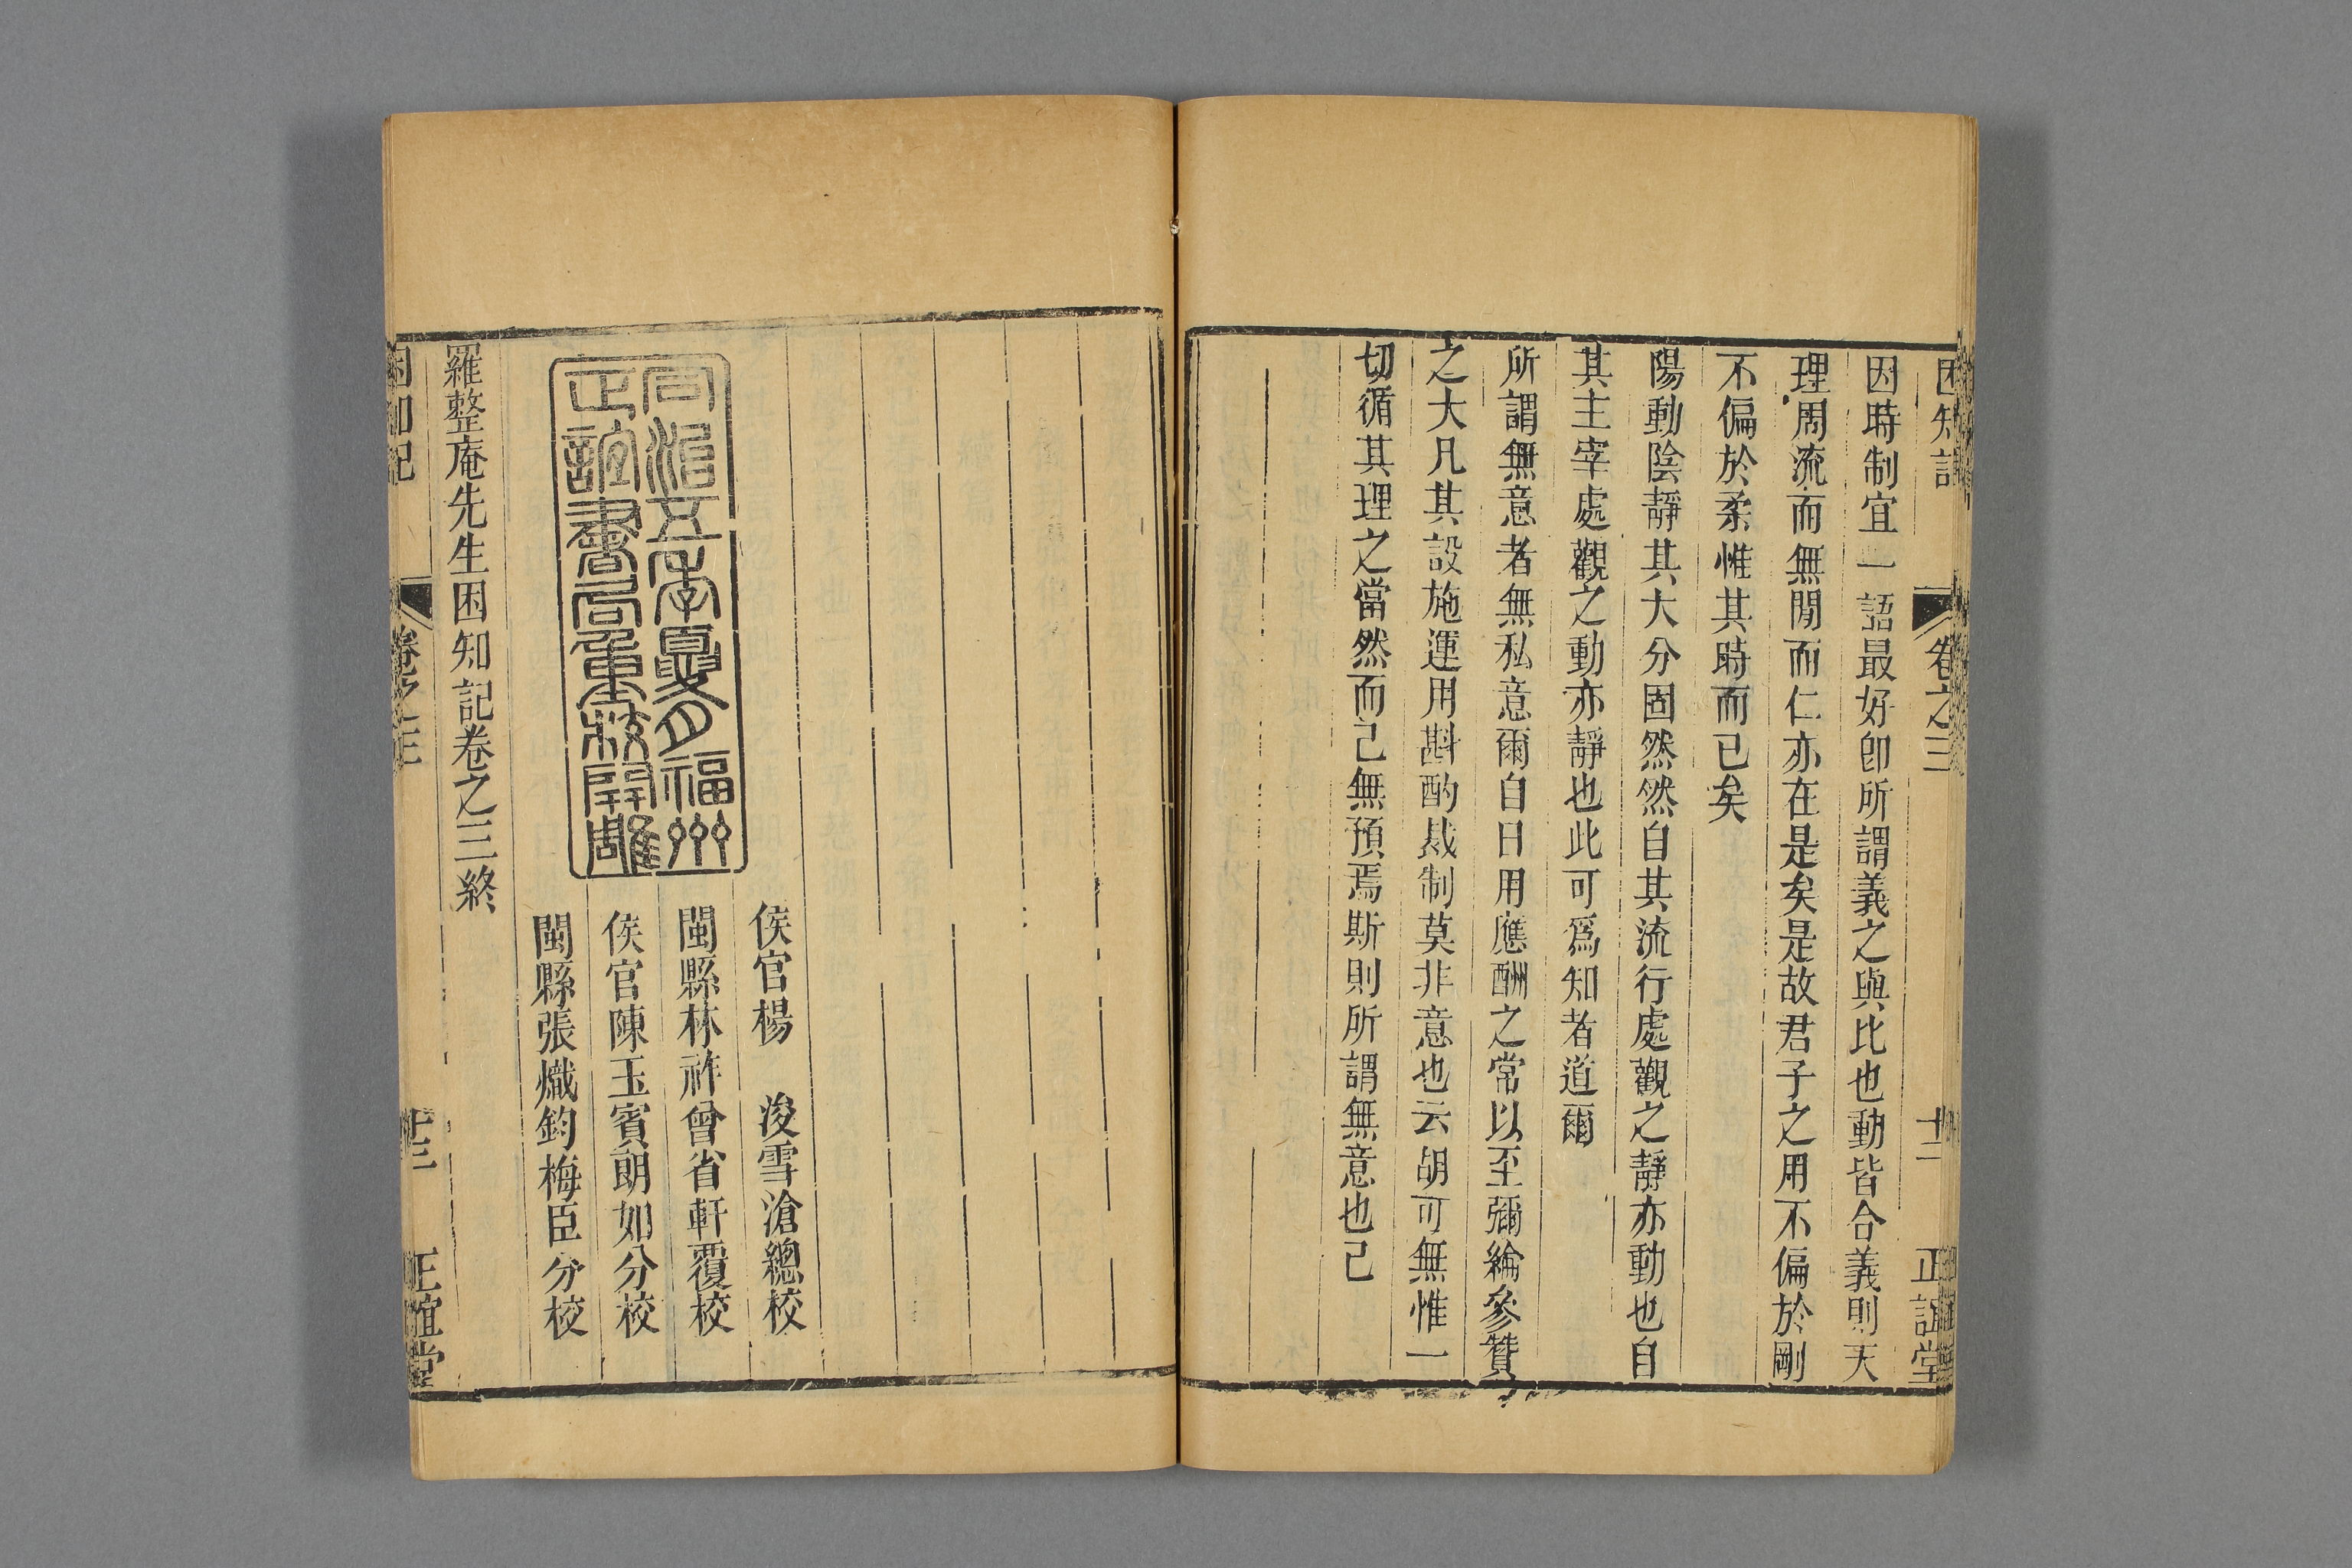 困知記
卷之三
十二
正誼堂
因時制宜一語最好卽所謂義之與比也動皆合義則天
理周流而無閒而仁亦在是矣是故君子之用不偏於剛
不偏於柔惟其時而已矣
陽動陰靜其大分固然然自其流行處觀之靜亦動也自
其主宰處觀之動亦靜也此可爲知者道爾
所謂無意者無私意爾自日用應酬之常以至彌綸參贊
之大凡其設施運用斟酌裁制莫非意也云胡可無惟一
切循其理之當然而己無預焉斯則所謂無意也己
同治五年夏月福州
正誼書局重校開雕
侯官楊 浚雪滄總校
閩縣林祚曾省軒覆校
侯官陳玉賓朗如分校
閩縣張熾鈞梅臣分校
羅整庵先生困知記卷之三終
困知記
卷之三
十二
正誼堂